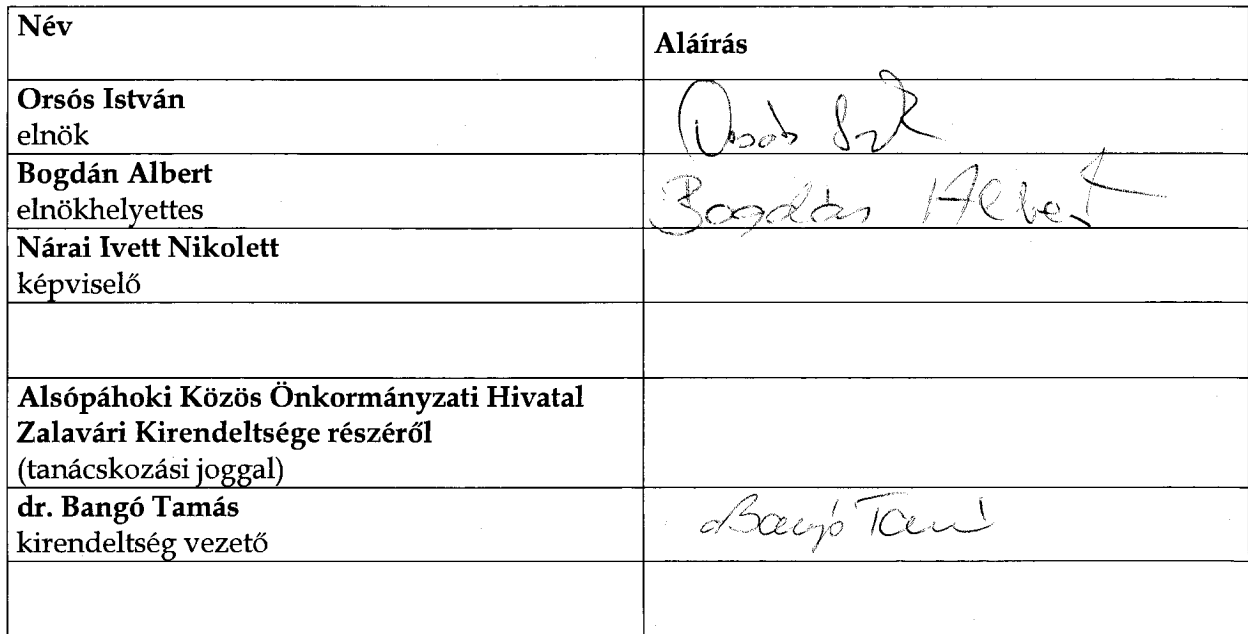 Név
Aláírás
Orsós István
elnök
Bogdán Albert
elnökhelyettes
Bogdán Albert
Nárai Ivett Nikolett
képviselő
Alsópáhoki Közös Önkormányzati Hivatal
Zalavári Kirendeltsége részéről
(tanácskozási joggal)
dr. Bangó Tamás
kirendeltség vezető